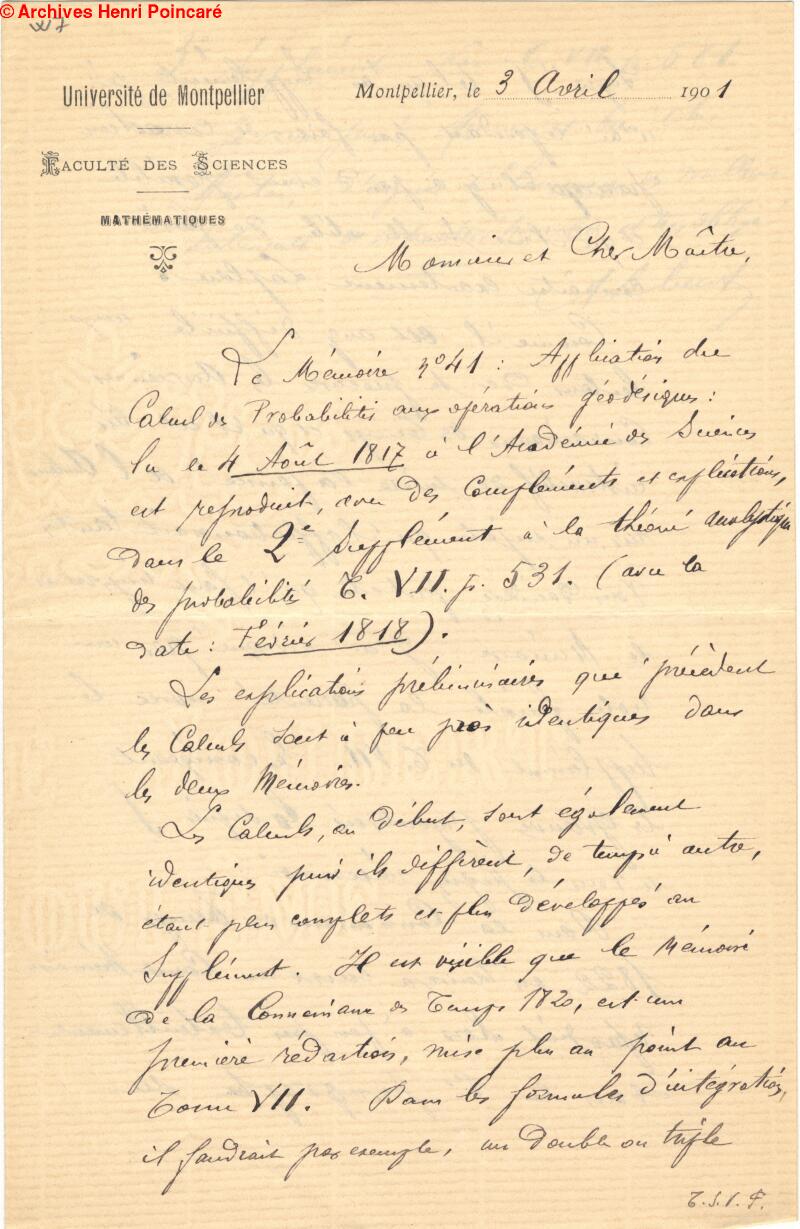 © Archives Henri Poincaré
Université de Montpellier
Montpellier, le 3 Avril 1901
FACULTÉ DES SCIENCES
MATHÉMATIQUES
Monsieur et Cher Maître,
Le Mémoire nº 41 : Application du
Calcul des Probabilités aux opérations géodésiques :
lu le 4 Août 1817 à l'Académie des Sciences
est reproduit, avec des compléments et explications,
dans le 2e Supplément à la théorie analytique
des probabilités T. VII. p. 531. (avec la
date : Février 1818).
Les explications préliminaires qui précèdent
les Calculs sont à peu près identiques dans
les deux Mémoires.
Les Calculs, au début, sont également
identiques puis ils diffèrent, de temps à autre,
étant plus complets et plus développés au
Supplément. Il est visible que le Mémoire
de la Connaissance des Temps 1820, est une
première rédaction, mise plus au point au
Tome VII. Dans les formules d'intégration,
il faudrait par exemple, un double ou triple
T. S. V. P.